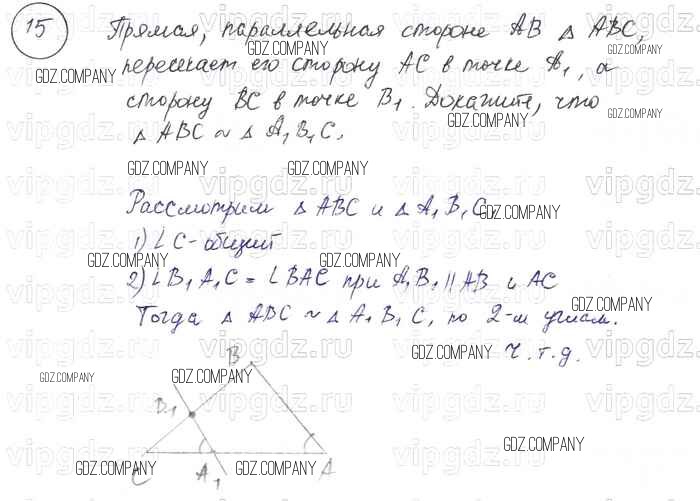 15 Прямая, параллельная стороне AB Δ ABC,
пересекает его сторону AC в точке A₁, а
сторону BC в точке B₁. Докажите, что
Δ ABC ~ Δ A₁B₁C.
Рассмотрим Δ ABC и Δ A₁B₁C
1) ∠C - общий
2) ∠B₁A₁C = ∠BAC при A₁B₁ || AB и AC
Тогда Δ ABC ~ Δ A₁B₁C, по 2-м углам.
Ч.т.д.
B
B₁
C A₁ A
GDZ.COMPANY
vipgdz.ru